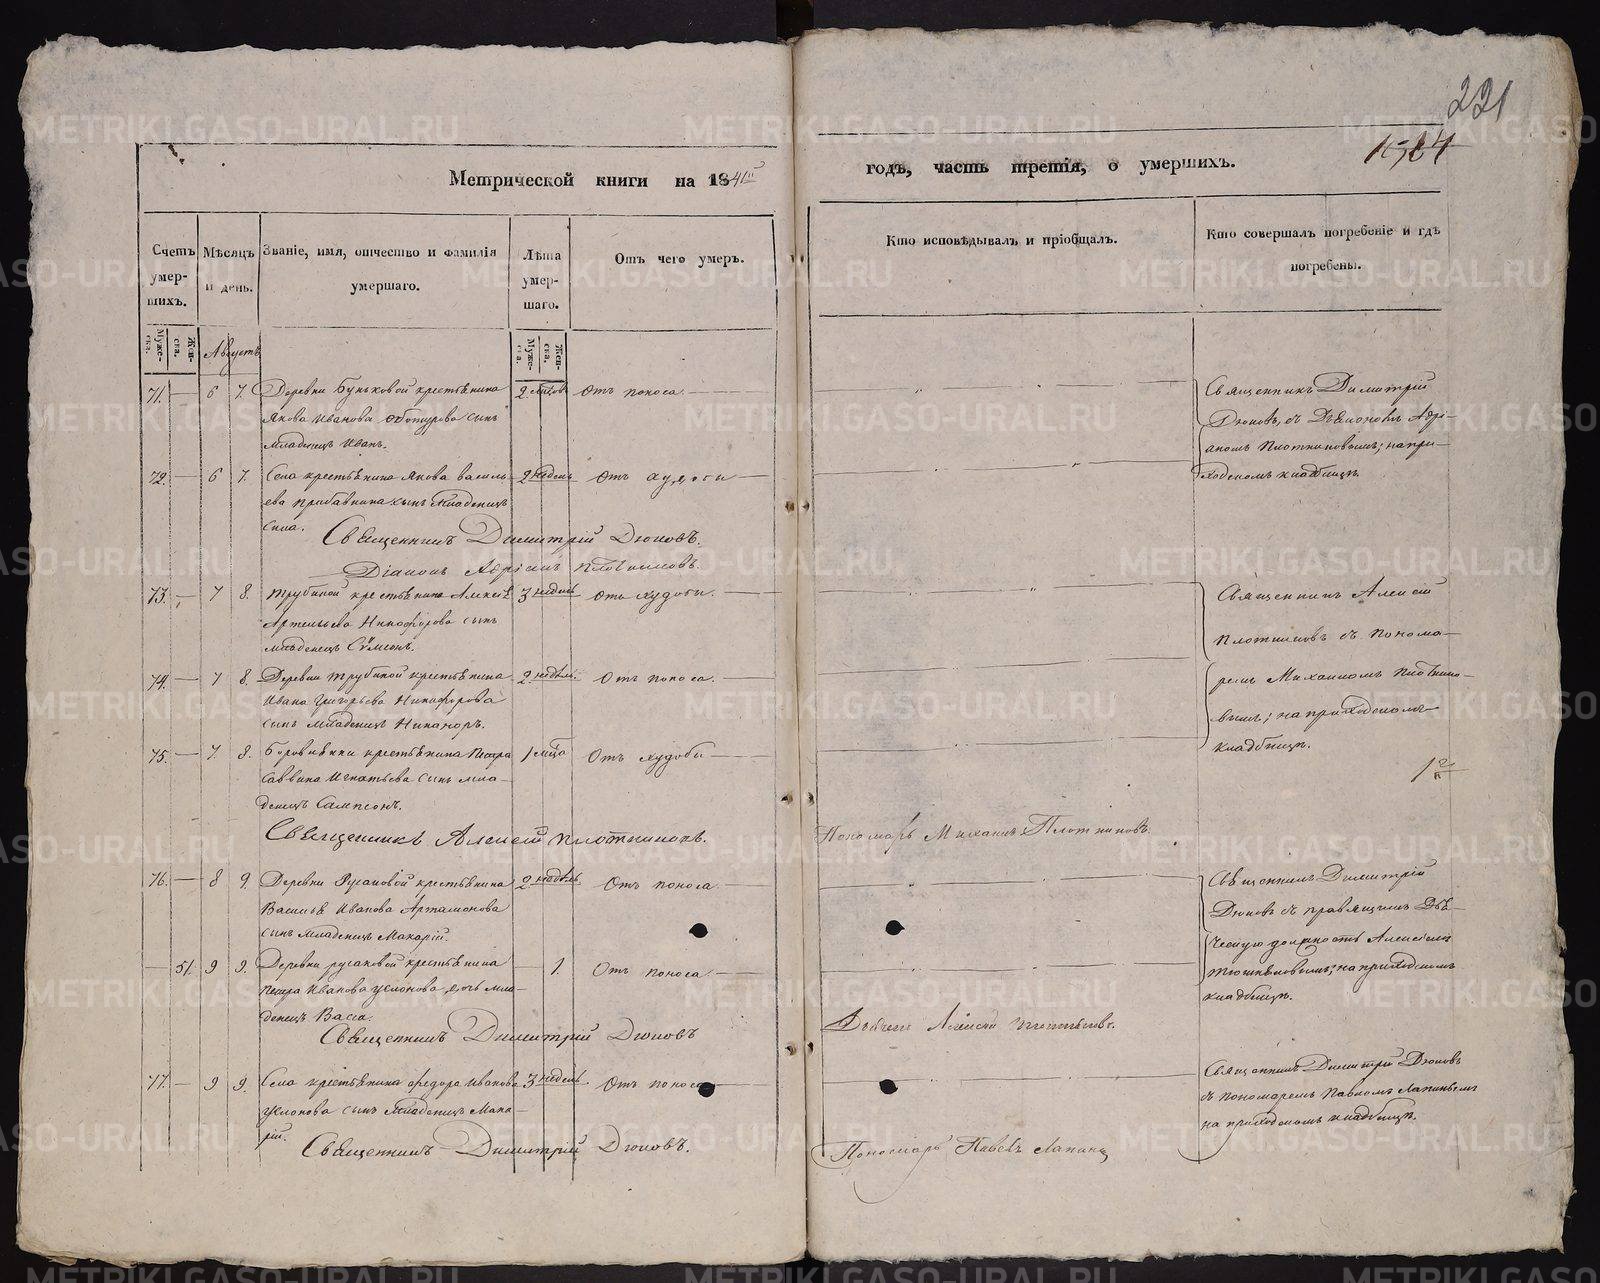 221
1584
Метрической книги на 1841й
годъ, часть третія, о умершихъ.
Счетъ умер-шихъ.
Мѣсяцъ и день.
Званіе, имя, отчество и фамилія умершаго.
Лѣта умер-шаго.
Отъ чего умеръ.
Кто исповѣдывалъ и пріобщалъ.
Кто совершалъ погребеніе и гдѣ погребены.
Муже-ска.
Жен-ска.
Августъ
Муже-ска.
Жен-ска.
71. — 6 7. Деревни Буньковой крестьянина 2 мѣсяцовъ Отъ поноса
Якова Иванова сынъ
младенецъ Иванъ.
Священникъ Димитрій
Дюковъ, съ Діакономъ Адрі-
аномъ Плотниковымъ; на при-
ходскомъ кладбищѣ.
72. — 6 7. Села крестьянина Якова Василь- 2 недѣль Отъ худобы
ева сынъ младенецъ
Сила.
Священникъ Димитрій Дюковъ.
Діаконъ Адріанъ Плотниковъ.
73. — 7 8. Трубиной крестьянина Алексѣя 3 недѣль Отъ худобы.
Артемьева Никифорова сынъ
младенецъ Сѵмеонъ.
Священникъ Алексій
Плотниковъ съ понома-
ремъ Михаиломъ Плотнико-
вымъ; на приходскомъ
кладбищѣ.
74. — 7 8. Деревни Трубиной крестьянина 2 недѣль. Отъ поноса.
Ивана Григорьева Никифорова
сынъ младенецъ Никаноръ.
75. — 7. 8. крестьянина Петра 1 мѣсяца Отъ худобы
Саввина Игнатьева сынъ мла-
денецъ Сампсонъ.
Священникъ Алексій Плотниковъ.
Пономарь Михаилъ Плотниковъ.
76. — 8 9. Деревни Русаковой крестьянина 2 недѣль Отъ поноса
Василья Иванова Артамонова
сынъ младенецъ Макарій.
Священникъ Димитрій
Дюковъ съ правящимъ Дья-
ческую должность Алексіемъ
на приходскомъ
кладбищѣ.
— 51. 9 9. Деревни Русаковой крестьянина — 1. Отъ поноса
Петра Иванова Услонова, дочь мла-
денецъ Васса.
Священникъ Димитрій Дюковъ
Алексій
77. — 9 9. Села крестьянина Федора Иванова 3 недѣль. Отъ поноса
Услонова сынъ младенецъ Мака-
рій.
Священникъ Димитрій Дюковъ
съ пономаремъ Павломъ Лапинымъ
на приходскомъ кладбищѣ.
Священникъ Димитрій Дюковъ.
Пономарь Павелъ Лапинъ
METRIKI.GASO-URAL.RU